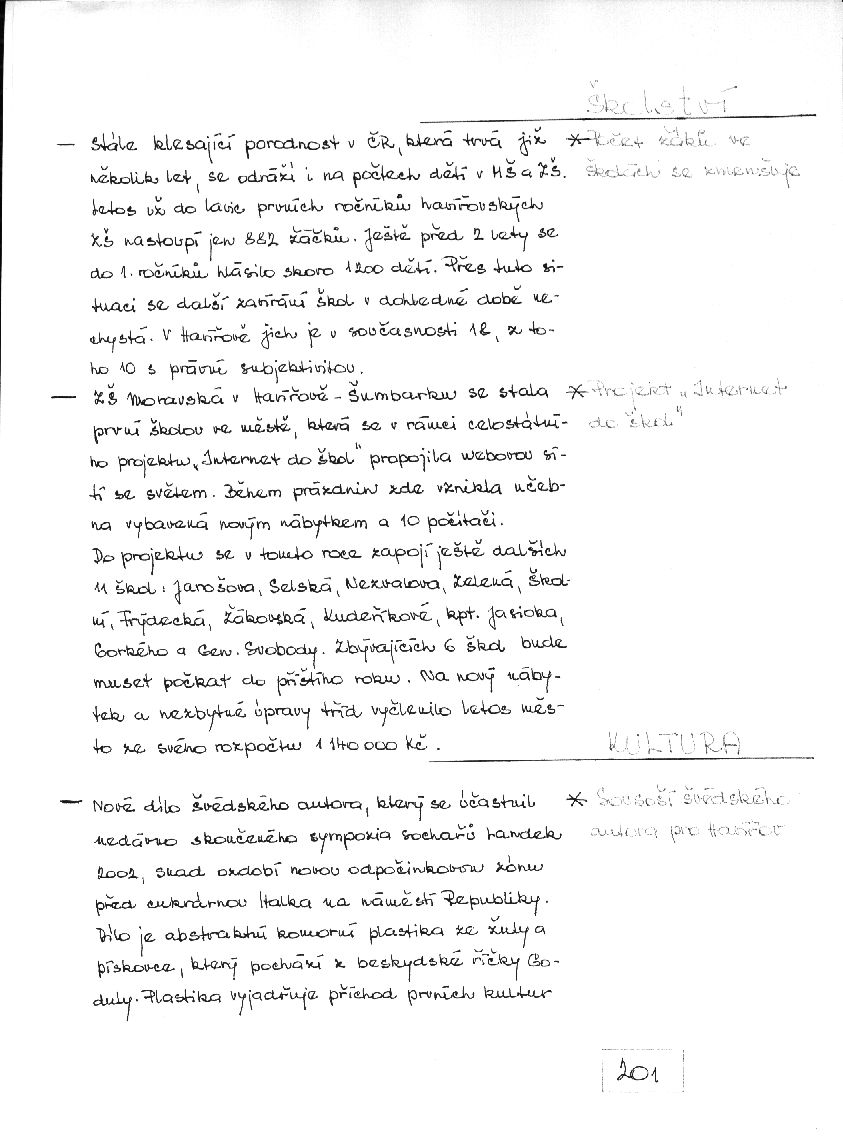 Školství
— Stále klesající porodnost v ČR, která trvá již
několik let, se odráží i na počtech dětí v MŠ a ZŠ.
Letos už do lavic prvních ročníků havířovských
ZŠ nastoupí jen 882 žáčků. Ještě před 2 lety se
do 1. ročníků hlásilo skoro 1200 dětí. Přes tuto si-
tuaci se další zavírání škol v dohledné době ne-
chystá. V Havířově jich je v současnosti 18, z to-
ho 10 s právní subjektivitou.
* Počet žáků ve
školách se zmenšuje
— ZŠ Moravská v Havířově - Šumbarku se stala
první školou ve městě, která se v rámci celostátní-
ho projektu „Internet do škol" propojila webovou sí-
tí se světem. Během prázdnin zde vznikla učeb-
na vybavená novým nábytkem a 10 počítači.
Do projektu se v tomto roce zapojí ještě dalších
11 škol: Jarošova, Selská, Nezvalova, Zelená, Škol-
ní, Frýdecká, Žákovská, Kudeříkové, kpt. Jasioka,
Gorkého a Gen. Svobody. Zbývajících 6 škol bude
muset počkat do příštího roku. Na nový náby-
tek a nezbytné úpravy tříd vyčlenilo letos měs-
to ze svého rozpočtu 1 140 000 Kč.
* Projekt „Internet
do škol"
KULTURA
— Nové dílo švédského autora, který se účastnil
nedávno skončeného sympozia sochařů Landek
2002, snad ozdobí novou odpočinkovou zónu
před cukrárnou Italka na náměstí Republiky.
Dílo je abstraktní komorní plastika ze žuly a
pískovce, který pochází z beskydské říčky Go-
duly. Plastika vyjadřuje příchod prvních kultur
* Sousoší švédského
autora pro Havířov
201